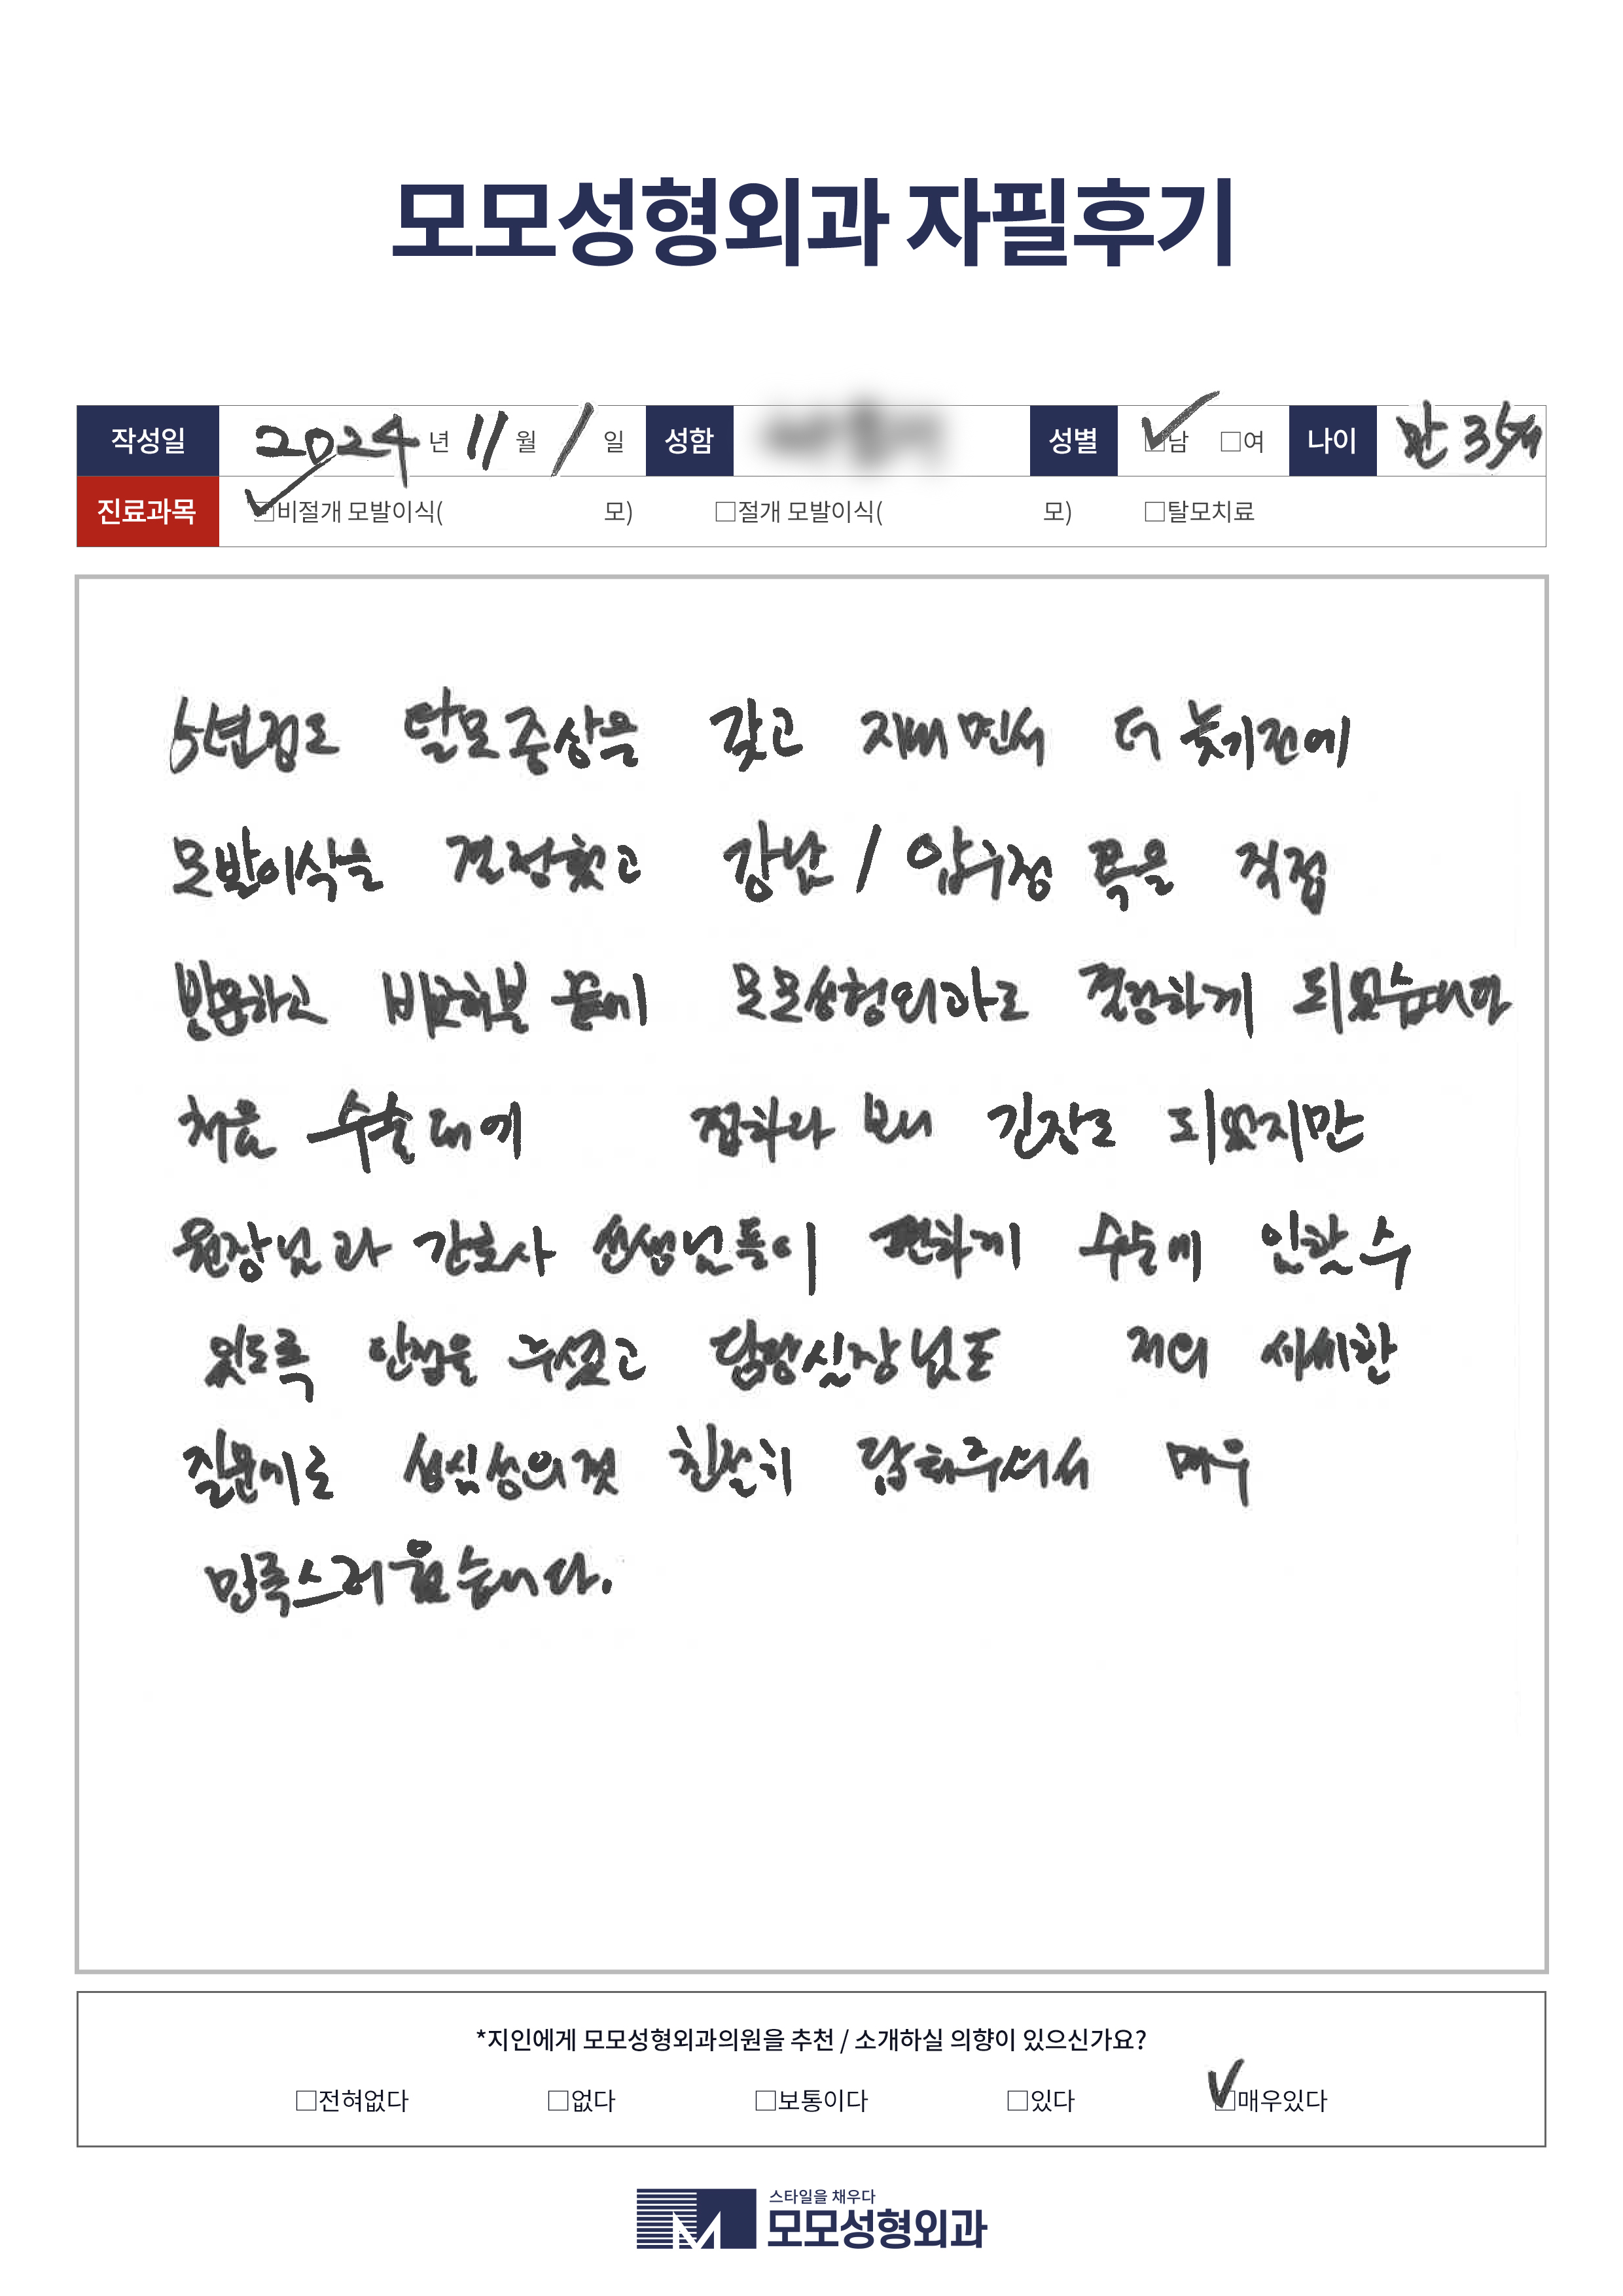 모모성형외과 자필후기
작성일 2024 년 11 월 1 일 성함 성별 ☑남 □여 나이 만 35세
진료과목 ☑비절개 모발이식( 모) □절개 모발이식( 모) □탈모치료
5년정도 탈모증상을 갖고 지내면서 더 늦기전에
모발이식을 결정했고 강남 / 압구정 쪽을 직접
방문하고 비교해본 끝에 모모성형외과로 결정하게 되었습니다
처음 수술대에 접하다 보니 긴장도 되었지만
원장님과 간호사 선생님들이 편하게 수술에 임할 수
있도록 안정을 주셨고 담당실장님도 저의 세세한
질문에도 성심성의껏 친절히 답해주셔서 매우
만족스러웠습니다.
*지인에게 모모성형외과의원을 추천 / 소개하실 의향이 있으신가요?
□전혀없다 □없다 □보통이다 □있다 ☑매우있다
스타일을 채우다
모모성형외과